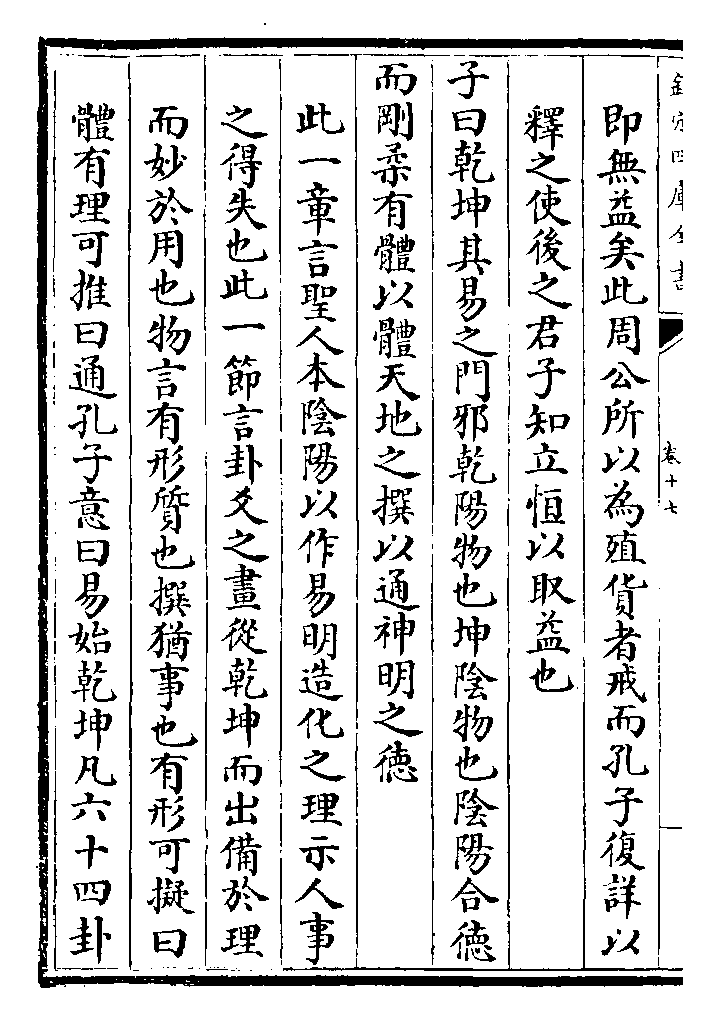 欽定四庫全書
卷十七
即無益矣此周公所以為殖貨者戒而孔子復詳以
釋之使後之君子知立恒以取益也
子曰乾坤其易之門邪乾陽物也坤陰物也陰陽合德
而剛柔有體以體天地之撰以通神明之德
此一章言聖人本陰陽以作易明造化之理示人事
之得失也此一節言卦爻之畫從乾坤而出備於理
而妙於用也物言有形質也撰猶事也有形可擬曰
體有理可推曰通孔子意曰易始乾坤凡六十四卦